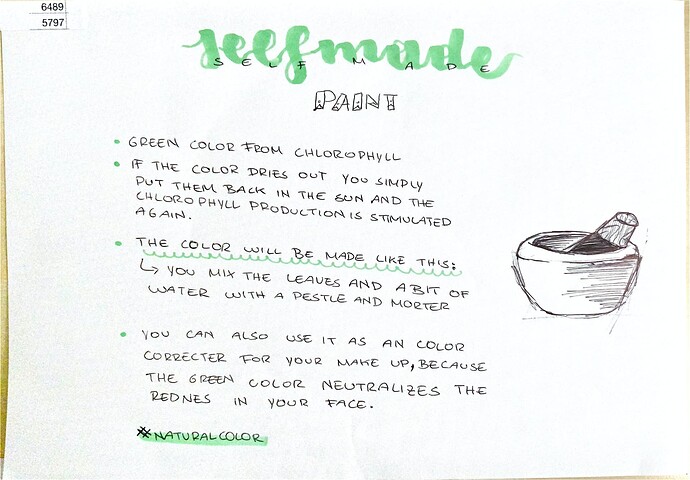 6489
5797
selfmade
SELF MADE
PAINT
• GREEN COLOR FROM CHLOROPHYLL
• IF THE COLOR DRIES OUT YOU SIMPLY
PUT THEM BACK IN THE SUN AND THE
CHLOROPHYLL PRODUCTION IS STIMULATED
AGAIN.
• THE COLOR WILL BE MADE LIKE THIS:
↳ YOU MIX THE LEAVES AND A BIT OF
WATER WITH A PESTLE AND MORTER
• YOU CAN ALSO USE IT AS AN COLOR
CORRECTER FOR YOUR MAKE UP, BECAUSE
THE GREEN COLOR NEUTRALIZES THE
REDNES IN YOUR FACE.
#NATURALCOLOR